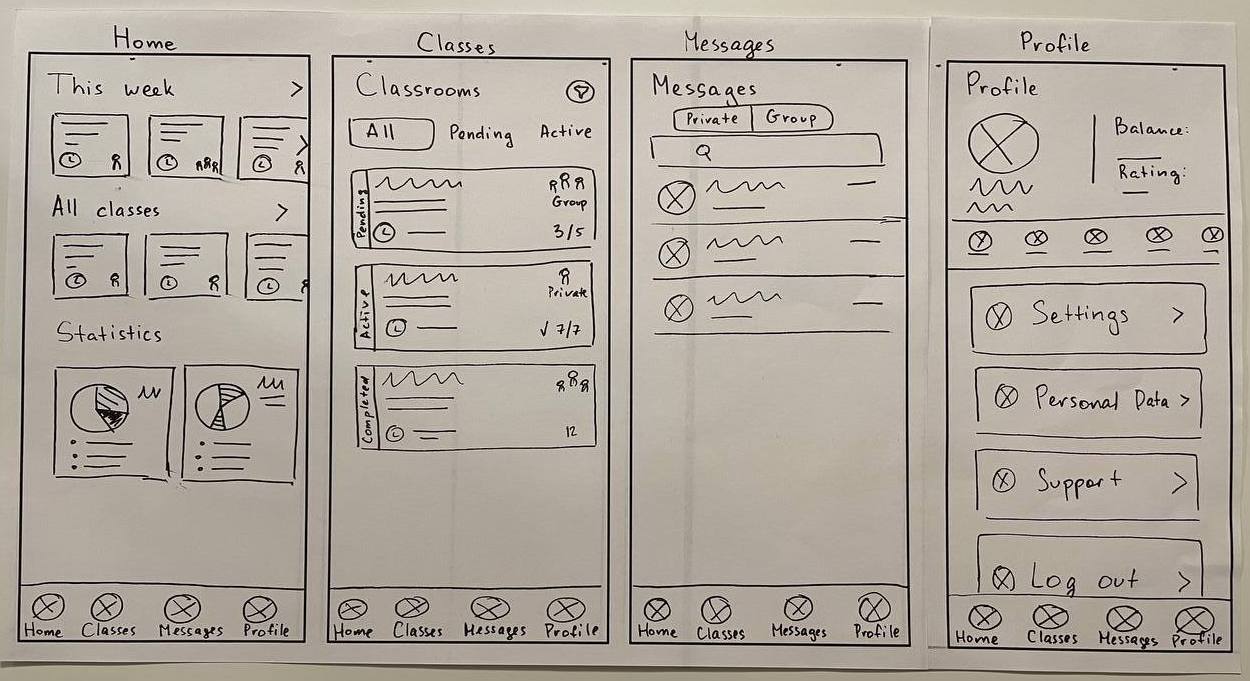 Home
This week
All classes
Statistics
Home Classes Messages Profile
Classes
Classrooms
All Pending Active
Pending
Group
3/5
Active
Private
✓ 7/7
Completed
12
Home Classes Messages Profile
Messages
Messages
Private Group
Home Classes Messages Profile
Profile
Profile
Balance:
Rating:
Settings >
Personal Data >
Support >
Log out >
Home Classes Messages Profile